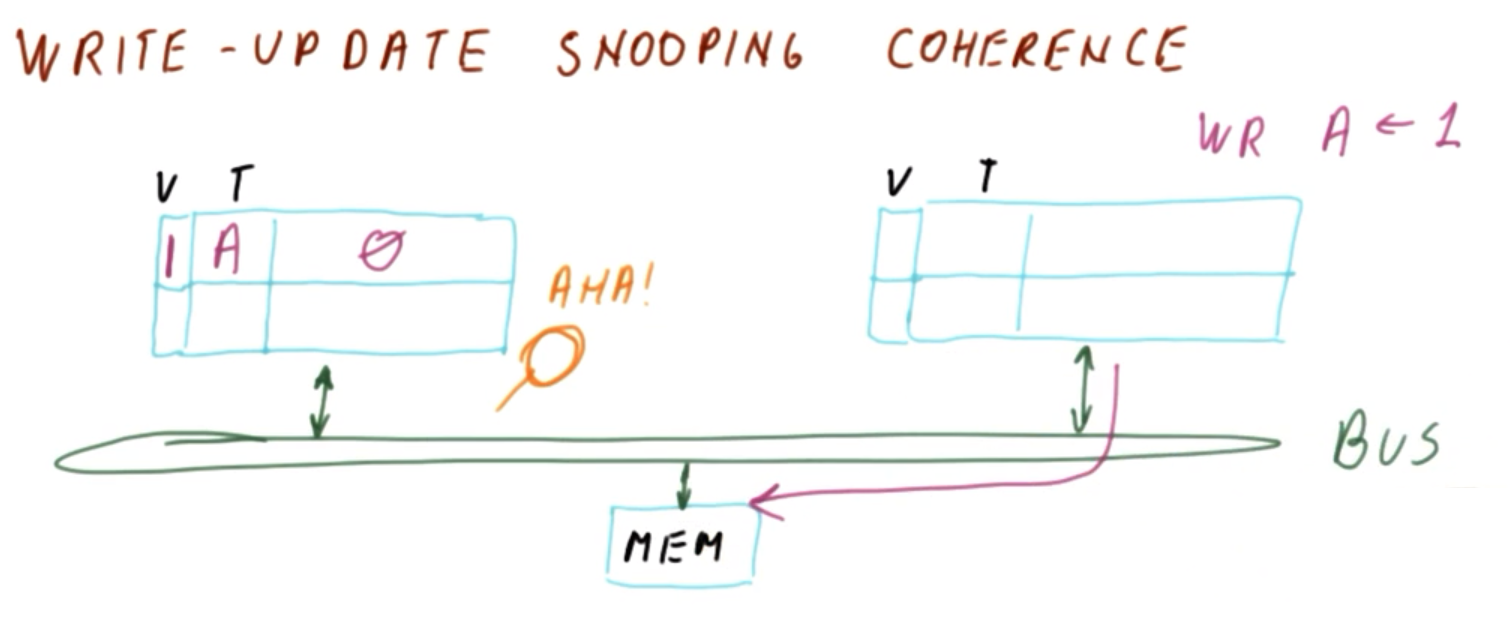 WRITE-UPDATE SNOOPING COHERENCE
WR A ← 1
V T
V T
1 A 0
AHA!
BUS
MEM